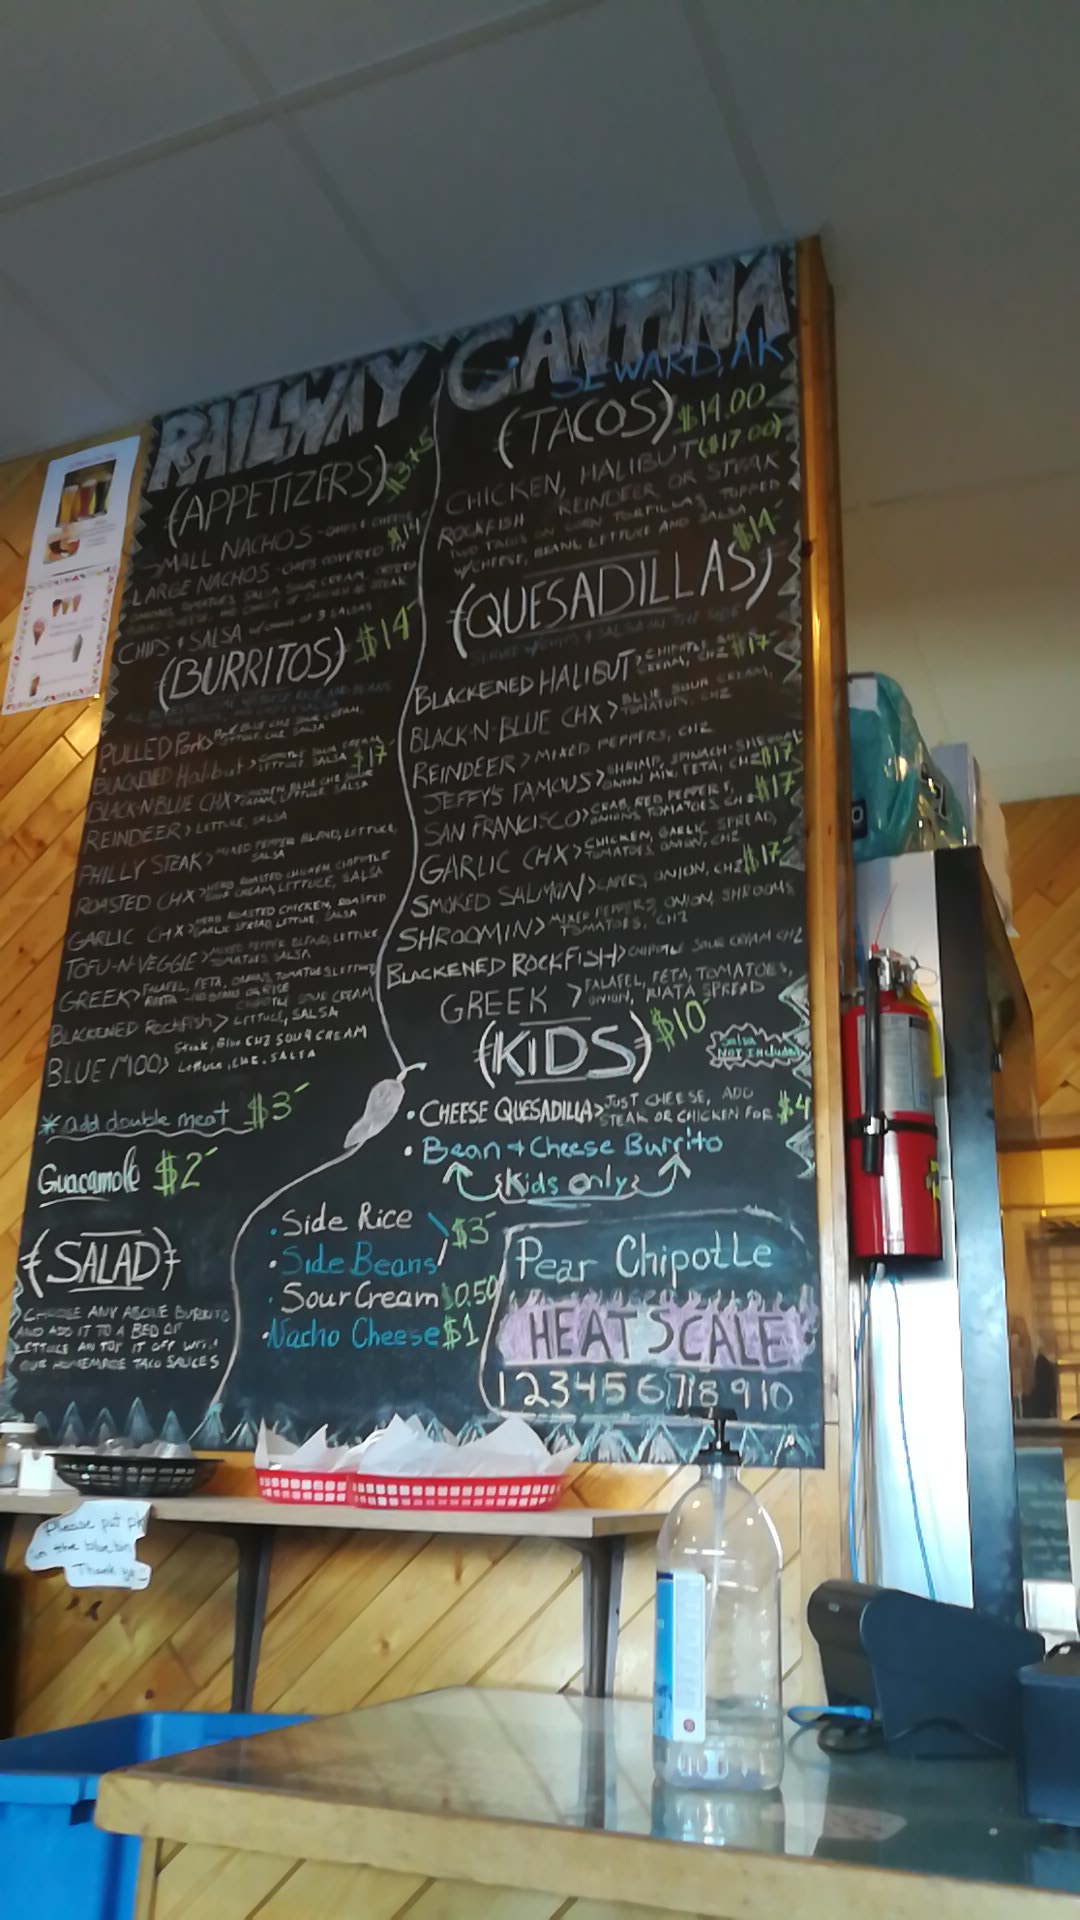 RAILWAY CANTINA
SEWARD, AK
(APPETIZERS)
SMALL NACHOS - CHIPS & CHEESE
LARGE NACHOS - CHIPS COVERED IN $14
CHIPS & SALSA
(BURRITOS) $14
PULLED Pork>
LETTUCE, CHZ SALSA
BLACKENED Halibut> $17
LETTUCE SALSA
BLACK-N-BLUE CHX>
REINDEER> LETTUCE, SALSA
PHILLY STEAK> MIXED PEPPER BLEND, LETTUCE,
SALSA
ROASTED CHX> HERB ROASTED CHICKEN, CHIPOTLE
SOUR CREAM, LETTUCE, SALSA
GARLIC CHX> HERB ROASTED CHICKEN, ROASTED
GARLIC SPREAD, LETTUCE, SALSA
TOFU-N-VEGGIE> MIXED PEPPER BLEND, LETTUCE
TOMATOES, SALSA
GREEK> FALAFEL, FETA, TOMATOES, LETTUCE
BLACKENED Rockfish> CHIPOTLE SOUR CREAM
LETTUCE, SALSA
BLUE MOO> Steak, Blue CHZ SOUR CREAM
Lettuce, CHZ, SALSA
* add double meat $3
Guacamole $2
(SALAD)
CHOOSE ANY ABOVE BURRITO
AND ADD IT TO A BED OF
LETTUCE
OUR HOMEMADE TACO SAUCES
(TACOS) $14.00
CHICKEN, HALIBUT ($17.00)
ROCKFISH REINDEER OR STEAK
TWO TACOS ON CORN TORTILLAS TOPPED
W/CHEESE, BEANS, LETTUCE AND SALSA
$14
(QUESADILLAS)
SERVED W/CHIPS & SALSA ON THE SIDE
BLACKENED HALIBUT> CHIPOTLE SOUR $17
CREAM, CHZ
BLACK-N-BLUE CHX> BLUE SOUR CREAM,
TOMATOES, CHZ
REINDEER> MIXED PEPPERS, CHZ
JEFFY'S FAMOUS> SHRIMP, SPINACH $17
ONION MIX, FETA, CHZ
SAN FRANCISCO> CRAB, RED PEPPERS, $17
ONIONS TOMATOES, CHZ
GARLIC CHX> CHICKEN, GARLIC SPREAD,
TOMATOES, ONION, CHZ
SMOKED SALMON> CAPERS, ONION, CHZ $17
SHROOMIN> MIXED PEPPERS, ONION, SHROOMS
TOMATOES, CHZ
BLACKENED ROCKFISH> CHIPOTLE SOUR CREAM CHZ
GREEK > FALAFEL, FETA, TOMATOES,
ONION, RIATA SPREAD
(KIDS) $10
Salsa
NOT Included
• CHEESE QUESADILLA> JUST CHEESE, ADD
STEAK OR CHICKEN FOR $4
• Bean + Cheese Burrito
Kids only
• Side Rice $3
• Side Beans
• Sour Cream $0.50
• Nacho Cheese $1
Pear Chipotle
HEAT SCALE
1 2 3 4 5 6 7 8 9 10
Please put
in the blue bin
Thank you